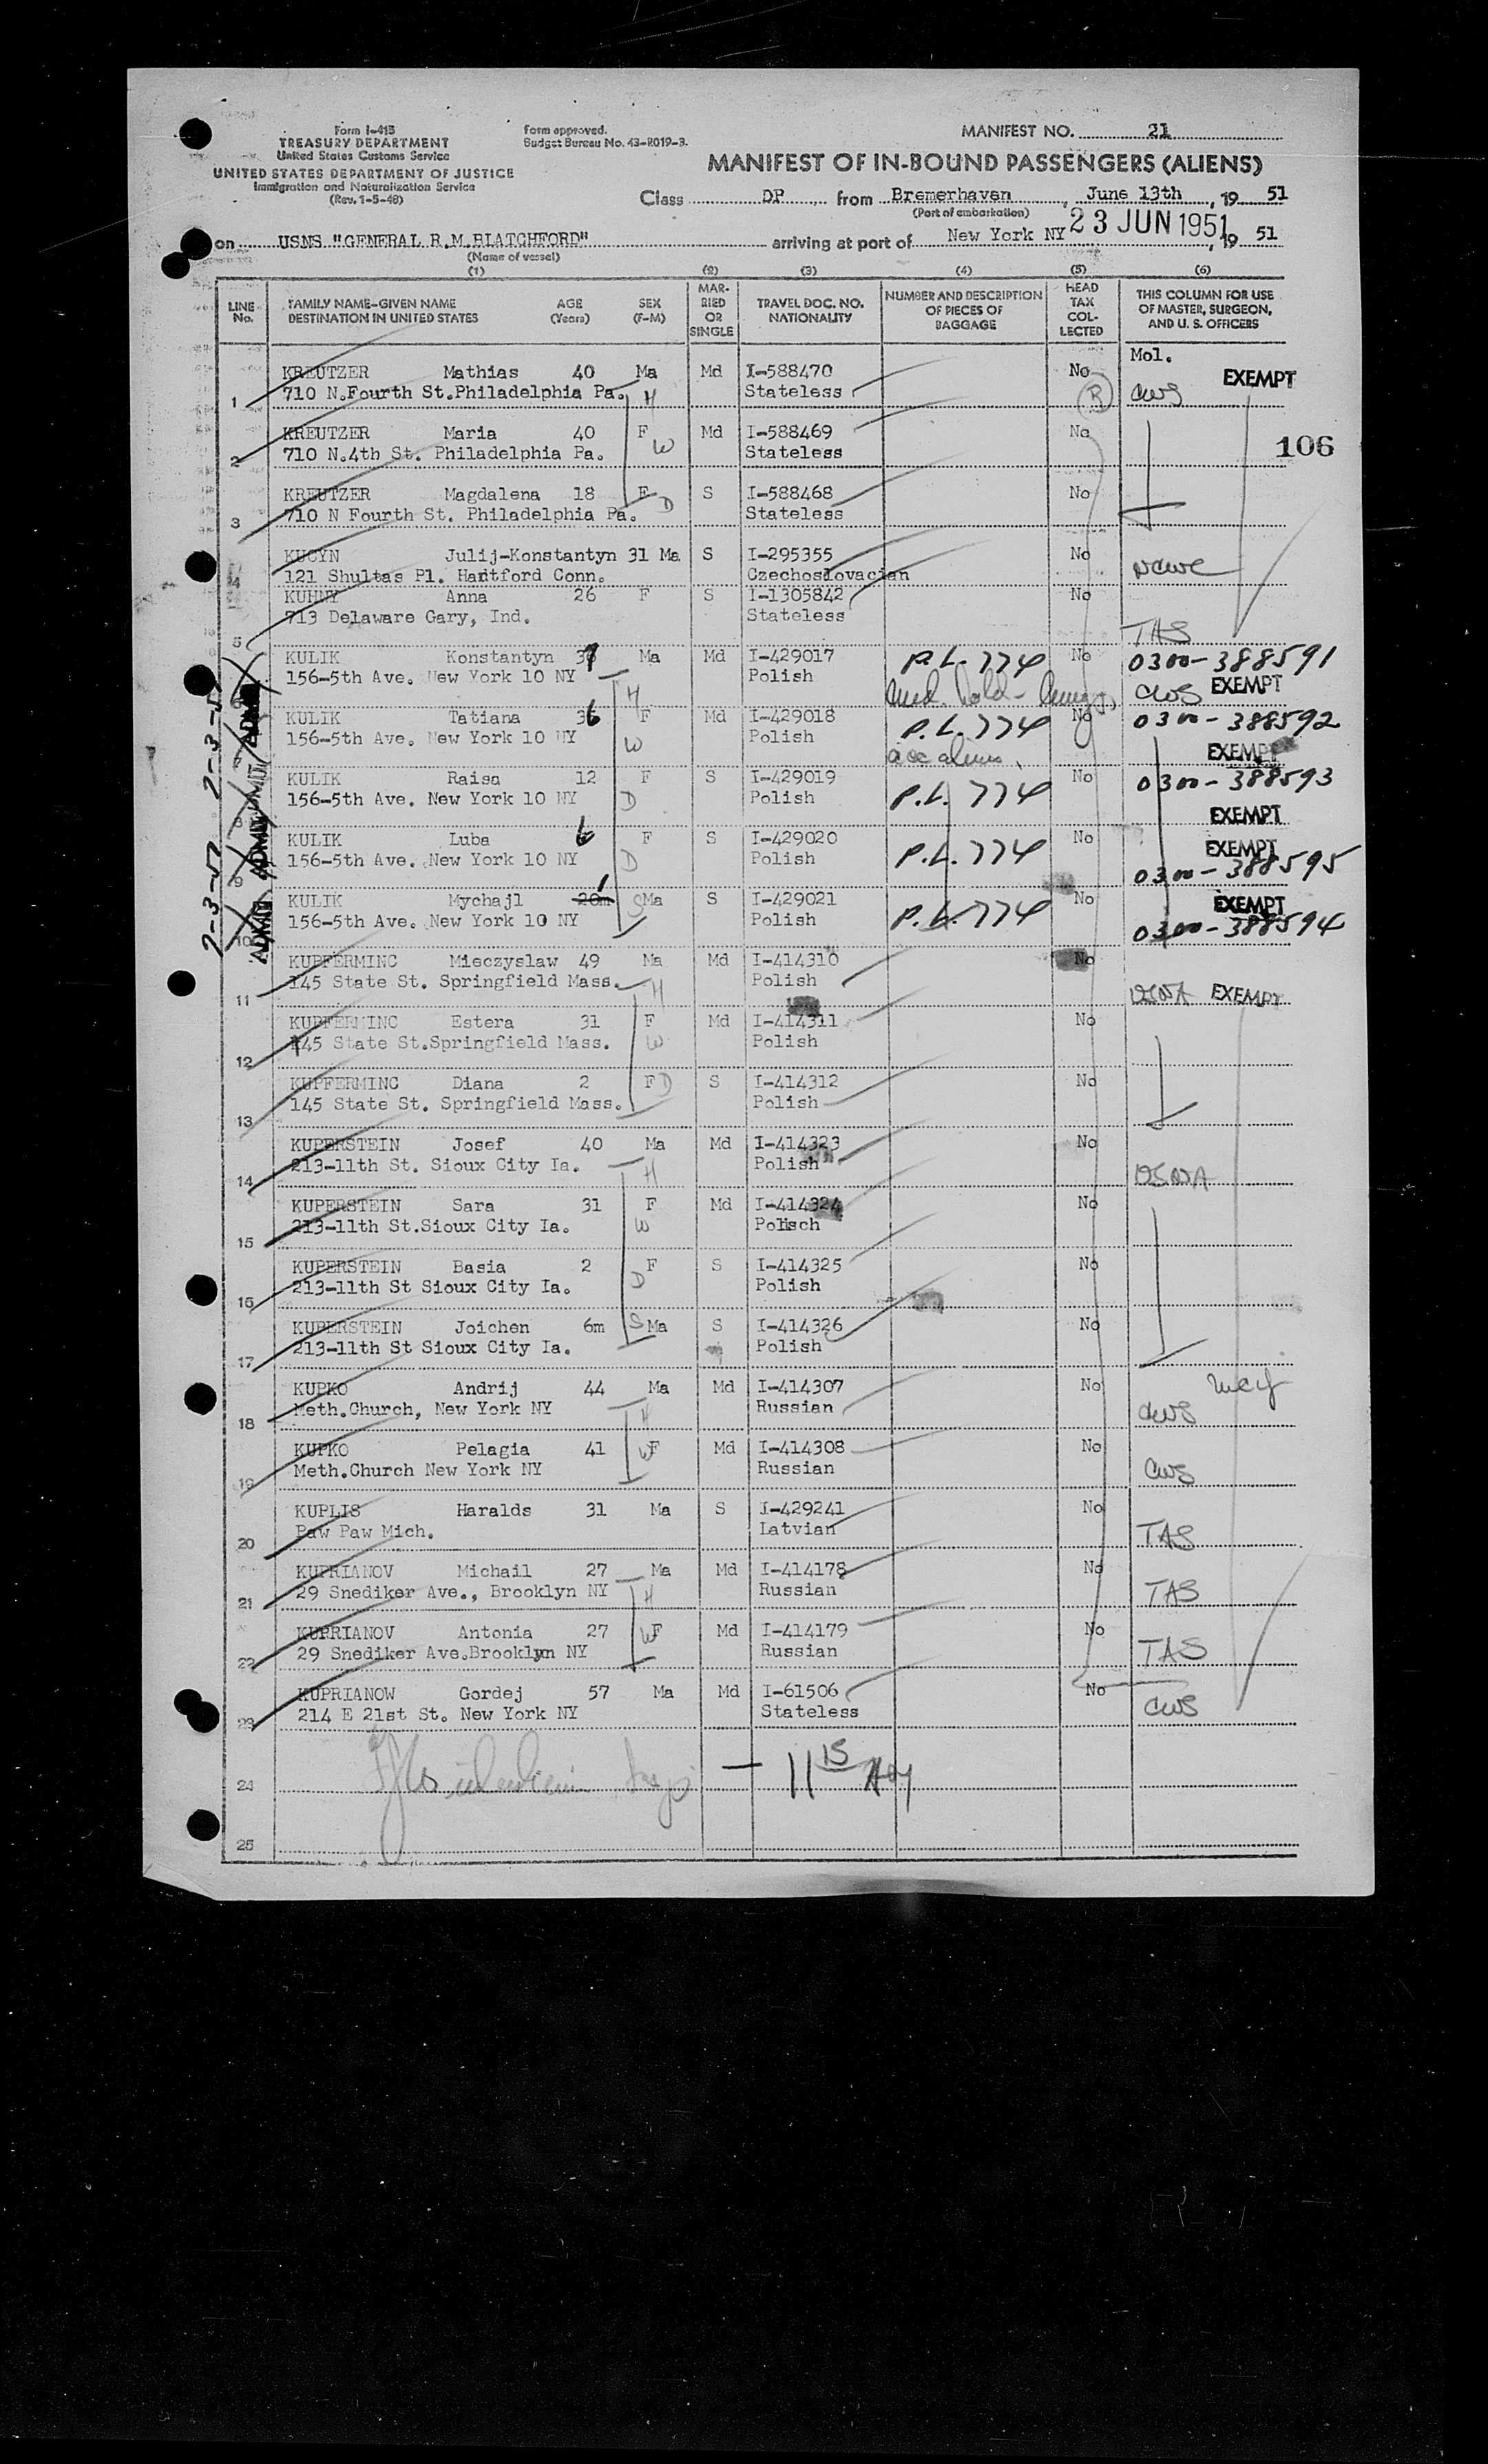 Form I-415
TREASURY DEPARTMENT
United States Customs Service
UNITED STATES DEPARTMENT OF JUSTICE
Immigration and Naturalization Service
(Rev. 1-5-48)
Form approved.
Budget Bureau No. 43-R019-3.
MANIFEST NO. 21
MANIFEST OF IN-BOUND PASSENGERS (ALIENS)
Class DP from Bremerhaven, June 13th, 19 51
(Port of embarkation)
on USNS "GENERAL R.M.BLATCHFORD" arriving at port of New York NY 23 JUN 1951, 19 51
(Name of vessel)
(1) (2) (3) (4) (5) (6)
LINE No. FAMILY NAME-GIVEN NAME DESTINATION IN UNITED STATES AGE (Years) SEX (F-M) MARRIED OR SINGLE TRAVEL DOC. NO. NATIONALITY NUMBER AND DESCRIPTION OF PIECES OF BAGGAGE HEAD TAX COLLECTED THIS COLUMN FOR USE OF MASTER, SURGEON, AND U. S. OFFICERS
Mol.
KREUTZER Mathias 40 Ma Md I-588470 No EXEMPT
1 710 N.Fourth St.Philadelphia Pa. H Stateless R CWS
KREUTZER Maria 40 F Md I-588469 No 106
2 710 N.4th St. Philadelphia Pa. W Stateless
KREUTZER Magdalena 18 F S I-588468 No
3 710 N Fourth St. Philadelphia Pa. D Stateless
KUCYN Julij-Konstantyn 31 Ma S I-295355 No
4 121 Shultas Pl. Hartford Conn. Czechoslovacian NCWC
KUHNY Anna 26 F S I-1305842 No
5 713 Delaware Gary, Ind. Stateless TAS
KULIK Konstantyn 37 Ma Md I-429017 P.L. 774 No 0300-388591
6 156-5th Ave. New York 10 NY H Polish Med. hold- CWS EXEMPT
KULIK Tatiana 36 F Md I-429018 P.L. 774 No 0300-388592
7 156-5th Ave. New York 10 NY W Polish EXEMPT
KULIK Raisa 12 F S I-429019 P.L. 774 No 0300-388593
8 156-5th Ave. New York 10 NY D Polish EXEMPT
KULIK Luba 6 F S I-429020 P.L. 774 No EXEMPT
9 156-5th Ave. New York 10 NY D Polish 0300-388595
KULIK Mychajl 20m 1 S Ma S I-429021 P.L. 774 No EXEMPT
10 156-5th Ave. New York 10 NY Polish 0300-388594
KUPFERMINC Mieczyslaw 49 Ma Md I-414310 No
11 145 State St. Springfield Mass. H Polish USNA EXEMPT
KUPFERMINC Estera 31 F Md I-414311 No
12 145 State St.Springfield Mass. W Polish
KUPFERMINC Diana 2 F D S I-414312 No
13 145 State St. Springfield Mass. Polish
KUPERSTEIN Josef 40 Ma Md I-414323 No
14 213-11th St. Sioux City Ia. H Polish USNA
KUPERSTEIN Sara 31 F Md I-414324 No
15 213-11th St.Sioux City Ia. W Polisch
KUPERSTEIN Basia 2 F S I-414325 No
16 213-11th St Sioux City Ia. D Polish
KUPERSTEIN Joichen 6m S Ma S I-414326 No
17 213-11th St Sioux City Ia. Polish
KUPKO Andrij 44 Ma Md I-414307 No
18 Meth.Church, New York NY H Russian CWS
KUPKO Pelagia 41 W F Md I-414308 No
19 Meth.Church New York NY Russian CWS
KUPLIS Haralds 31 Ma S I-429241 No
20 Paw Paw Mich. Latvian TAS
KUPRIANOV Michail 27 Ma Md I-414178 No
21 29 Snediker Ave., Brooklyn NY H Russian TAS
KUPRIANOV Antonia 27 W F Md I-414179 No
22 29 Snediker Ave.Brooklyn NY Russian TAS
KUPRIANOW Gordej 57 Ma Md I-61506 No
23 214 E 21st St. New York NY Stateless CWS
24 — 11 15
25